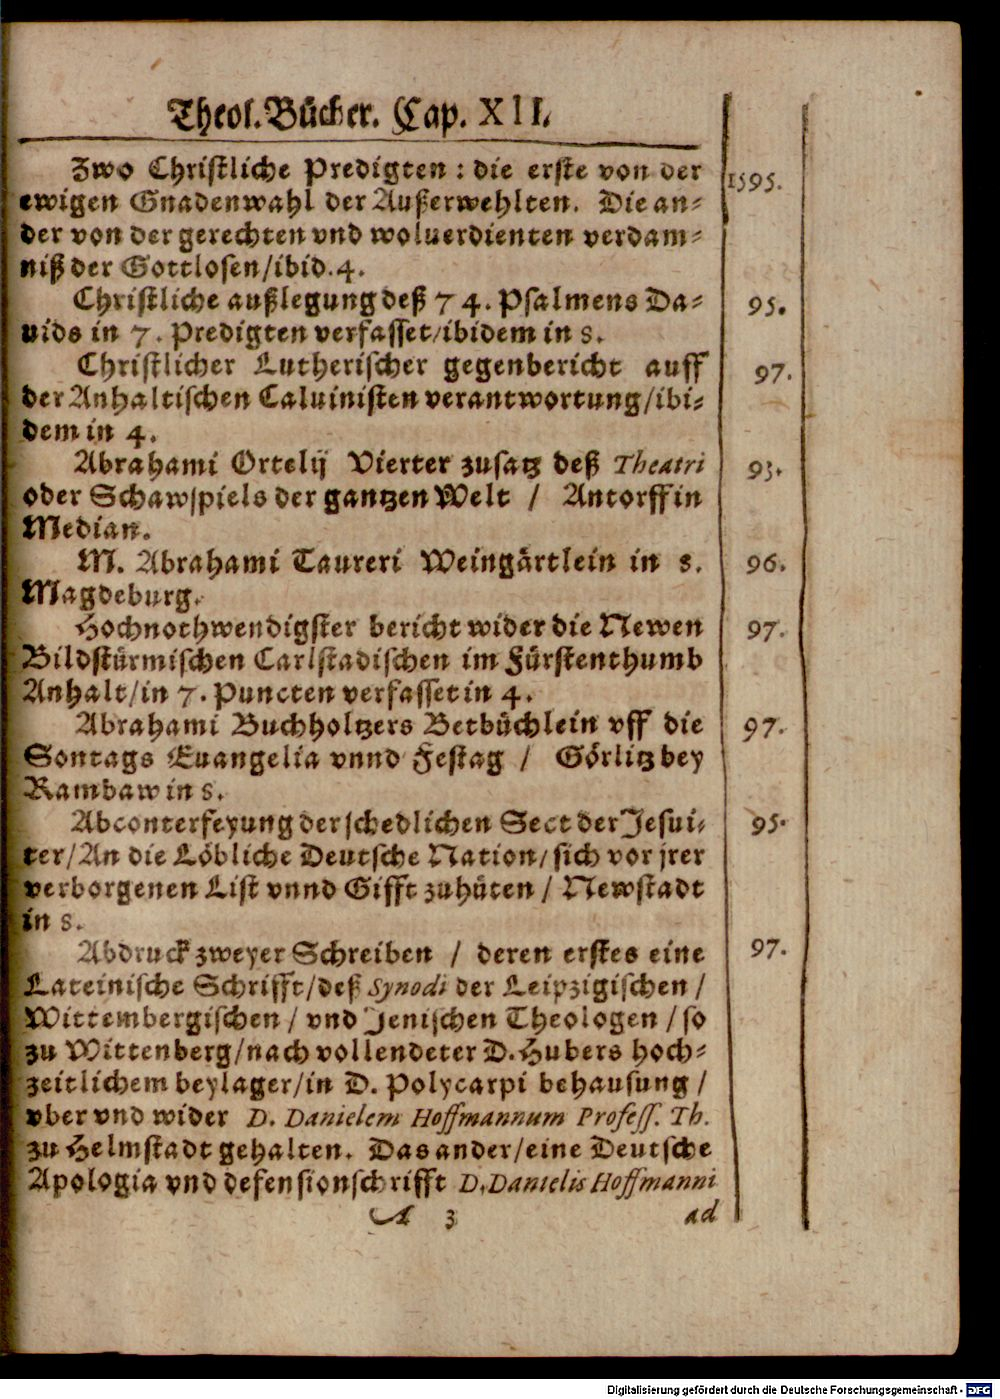 Theol. Bücher. Cap. XII.
Zwo Christliche Predigten: die erste von der 1595.
ewigen Gnadenwahl der Außerwehlten. Die an-
der von der gerechten vnd woluerdienten verdam-
niß der Gottlosen/ibid. 4.
Christliche außlegung deß 74. Psalmens Da- 95.
uids in 7. Predigten verfasset/ibidem in 8.
Christlicher Lutherischer gegenbericht auff 97.
der Anhaltischen Caluinisten verantwortung/ibi-
dem in 4.
Abrahami Ortelij Vierter zusatz deß Theatri 93.
oder Schawspiels der gantzen Welt / Antorff in
Median.
M. Abrahami Taureri Weingärtlein in 8. 96.
Magdeburg.
Hochnothwendigster bericht wider die Newen 97.
Bildstürmischen Carlstadischen im Fürstenthumb
Anhalt/in 7. Puncten verfasset in 4.
Abrahami Buchholtzers Betbüchlein vff die 97.
Sontags Euangelia vnnd Festag / Görlitz bey
Rambaw in 8.
Abconterfeyung der schedlichen Sect der Jesui- 95.
ter/An die Löbliche Deutsche Nation/sich vor jrer
verborgenen List vnnd Gifft zuhüten / Newstadt
in 8.
Abdruck zweyer Schreiben / deren erstes eine 97.
Lateinische Schrifft/deß Synodi der Leipzigischen/
Wittembergischen/ vnd Jenischen Theologen /so
zu Wittenberg/nach vollendeter D. Hubers hoch-
zeitlichem beylager/in D. Polycarpi behausung /
vber vnd wider D. Danielem Hoffmannum Profess. Th.
zu Helmstadt gehalten. Das ander/eine Deutsche
Apologia vnd defensionschrifft D. Danielis Hoffmanni
A 3 ad
Digitalisierung gefördert durch die Deutsche Forschungsgemeinschaft - DFG